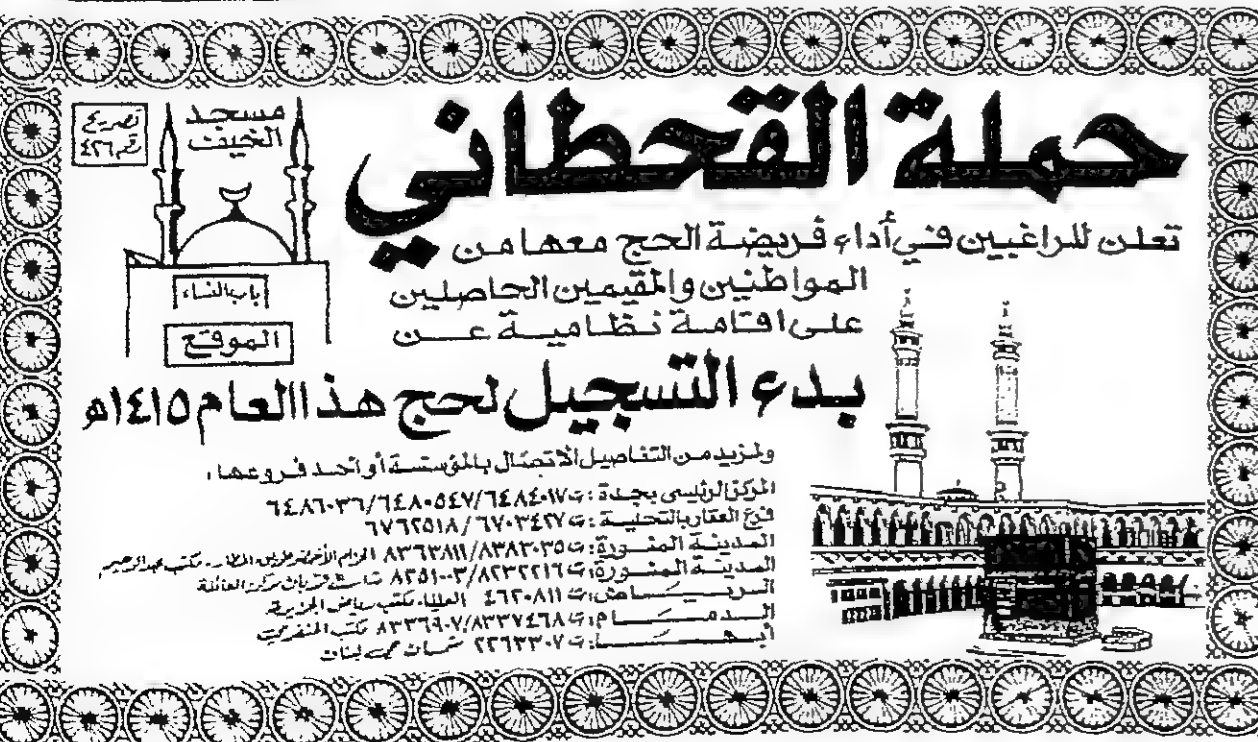 حملة القحطاني
تصريح
رقم ٤٢٦
مسجد
الخيف
باب النساء
الموقع
تعلن للراغبين في أداء فريضة الحج معها من
المواطنين والمقيمين الحاصلين
على اقامة نظامية عن
بدء التسجيل لحج هذا العام ١٤١٥هـ
ولمزيد من التفاصيل الاتصال بالمؤسسة أو أحد فروعها:
المركز الرئيسي بجدة: ت ٦٤٨٤٠١٧/٦٤٨٠٥٤٧/٦٤٨٦٠٣٦
فرع العقار بالتحلية: ت ٦٧٠٣٤٢٧/٦٧٦٢٥١٨
المدينة المنورة: ت ٨٣٨٣٠٣٥/٨٣٦٣٨١١ الحزام الأخضر طريق المطار - مكتب عبدالرحيم
المدينة المنورة: ت ٨٢٣٢٢١٦/٨٣٥١٠٠٣ شارع قربان مركز العائلة
الرياض: ت ٤٦٢٠٨١١ العليا، مكتب رياض الجزيرة
الدمام: ت ٨٣٣٧٤٦٨/٨٣٣٦٩٠٧ مكتب
أبها: ت ٢٢٦٣٣٠٧